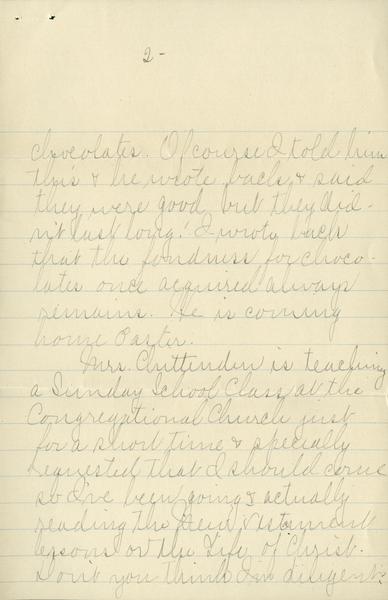 2-
chocolates. Of course I told him
this & he wrote back & said
they were good but they did-
n't last long! I wrote back
that the fondness for choco-
lates once acquired always
remains. He is coming
home Easter.
Mrs. Chittenden is teaching
a Sunday School Class at the
Congregational Church just
for a short time & specially
requested that I should come
so I've been going & actually
reading the New Testament
lessons on the Life of Christ.
Don't you think I'm diligent?